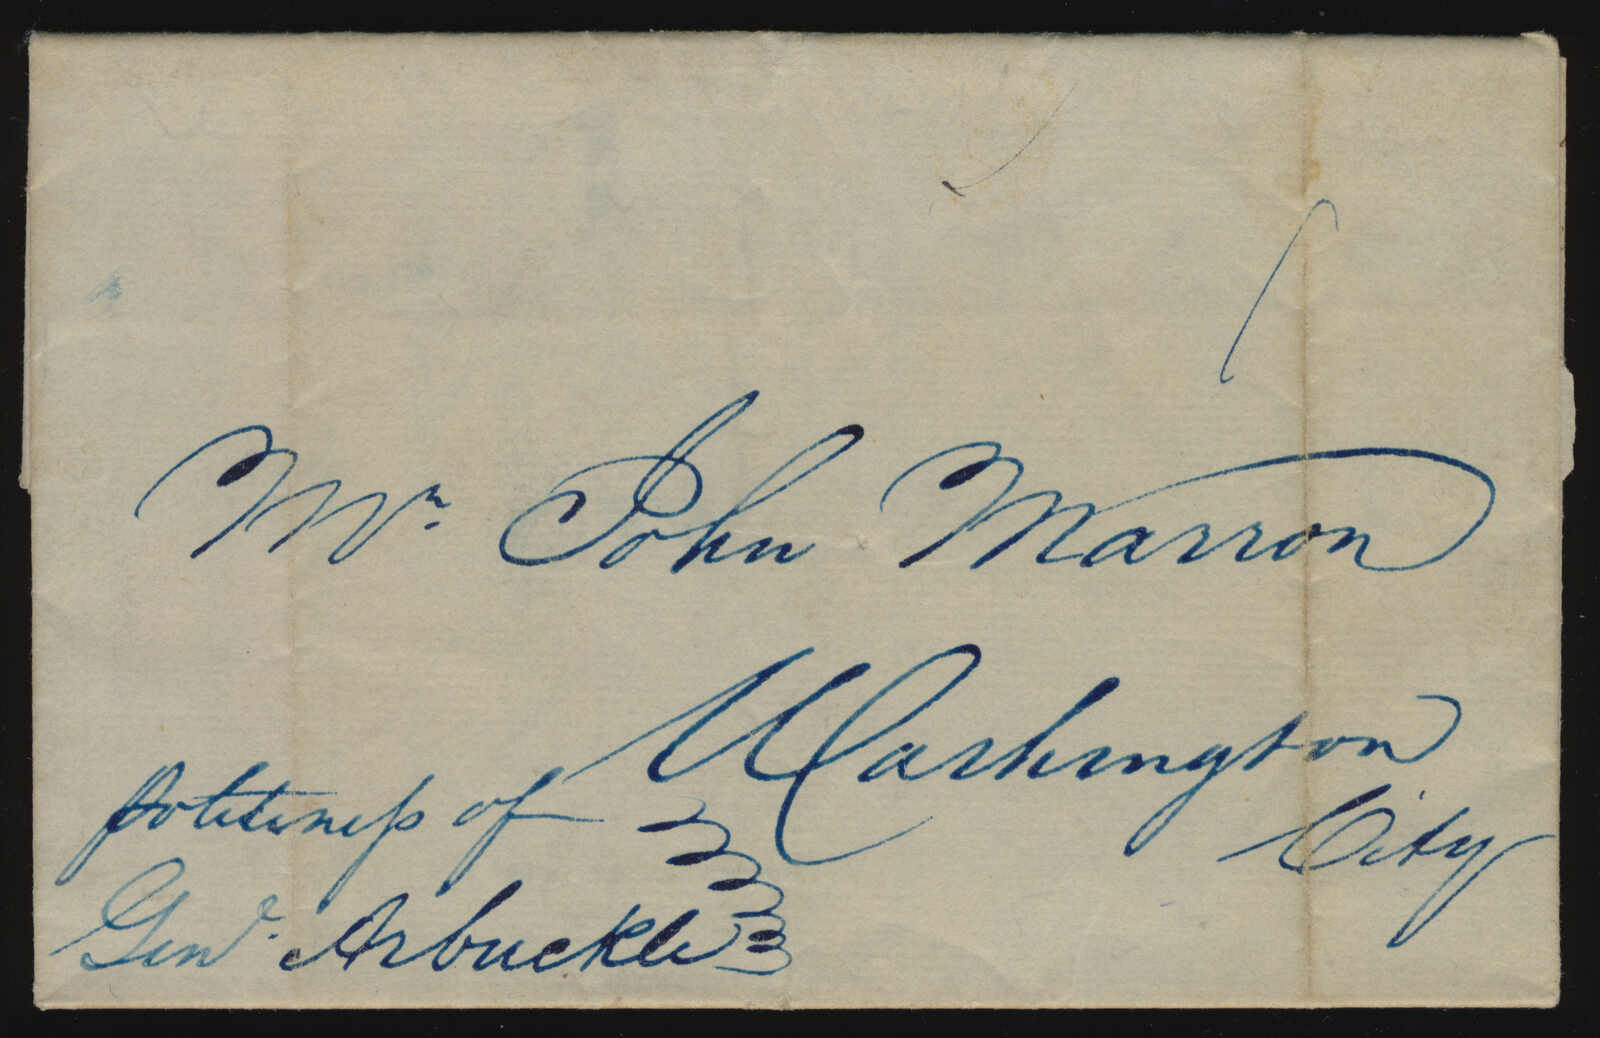 Mr. John Marron
Washington
City
politeness of
Genl. Arbuckle